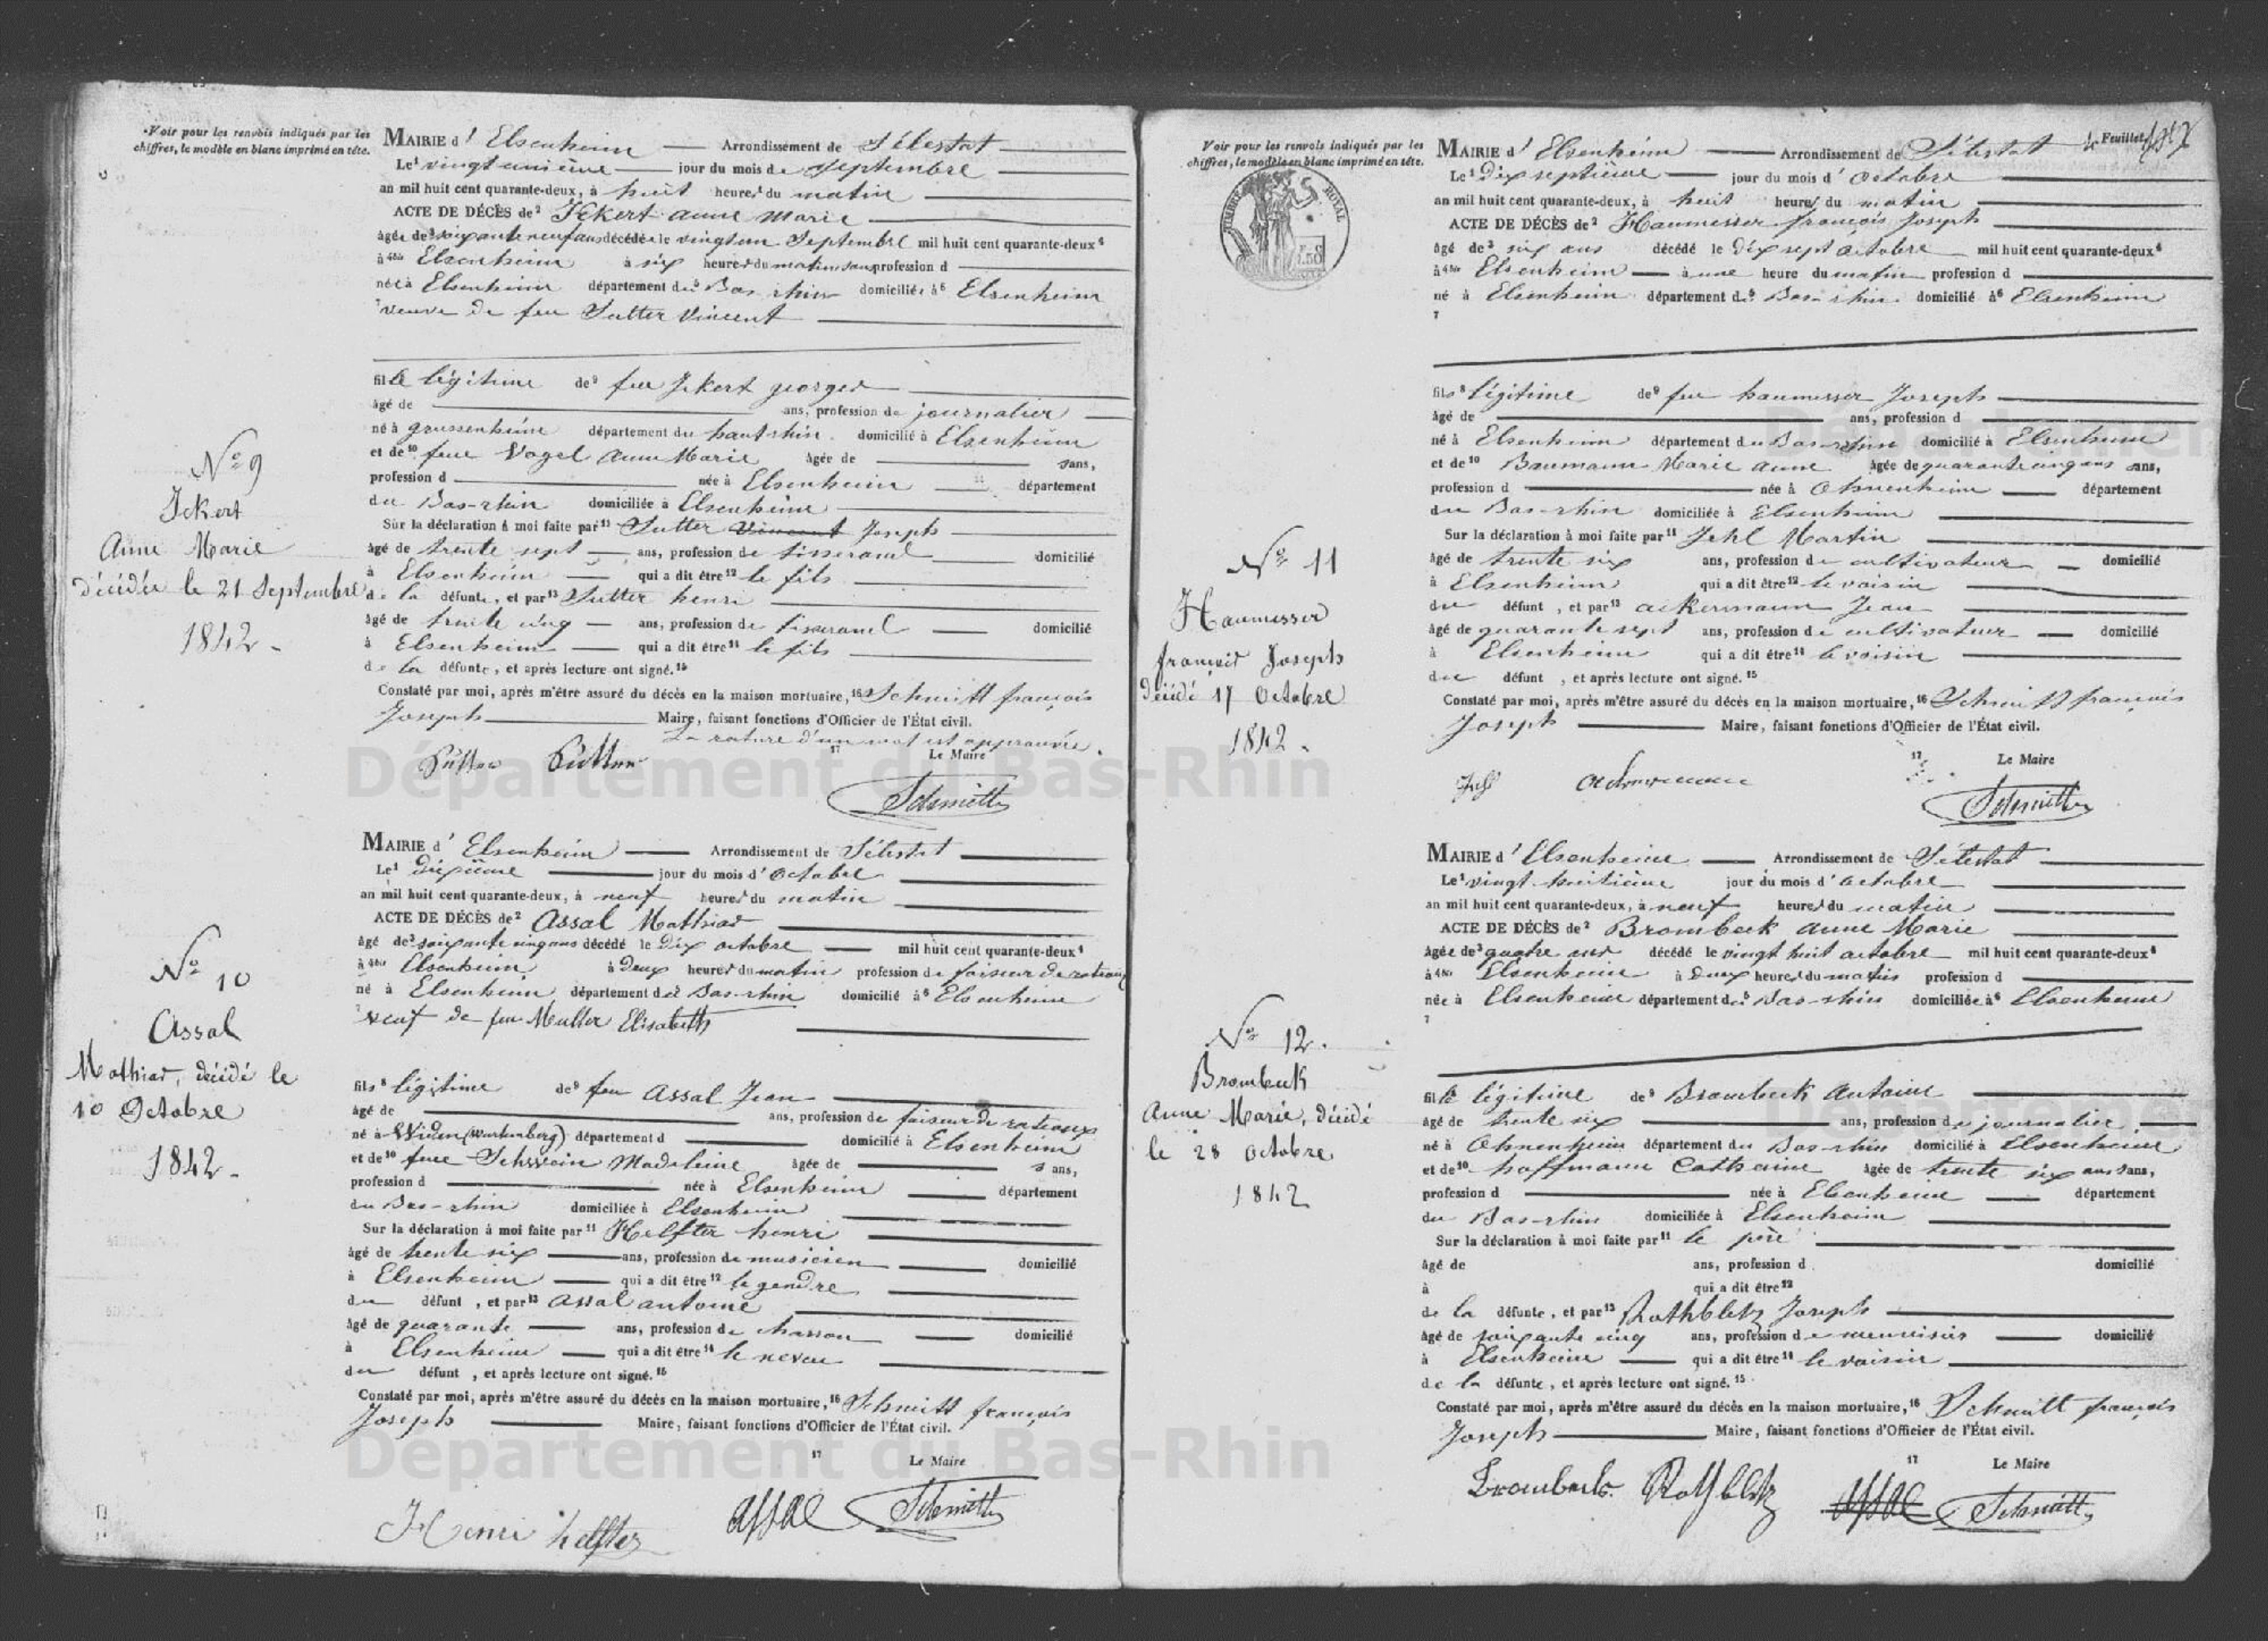 Voir pour les renvois indiqués par les
chiffres, le modèle en blanc imprimé en tête.
MAIRIE d' Elsenheim Arrondissement de Sélestat
Le¹ vingt unième jour du mois de septembre
an mil huit cent quarante-deux, à huit heures du matin
ACTE DE DÉCÈS de² Jekert anne Marie
âgée de³ soixante neuf ans décédée le vingt un Septembre mil huit cent quarante-deux⁴
à Elsenheim à six heures du matin sans profession d
née à Elsenheim département du⁵ Bas-rhin domiciliée à⁶ Elsenheim
⁷ veuve de feu Sutter Vincent
fille légitime de⁹ feu Jekert georges
âgé de ans, profession de journalier
né à grussenheim département du haut-rhin domicilié à Elsenheim
et de¹⁰ feue Vogel anne Marie âgée de ans,
profession d née à Elsenheim département
du Bas-rhin domiciliée à Elsenheim
Sur la déclaration à moi faite par¹¹ Sutter Vincent Joseph
âgé de trente sept ans, profession de tisserand domicilié
à Elsenheim qui a dit être¹² le fils
de la défunte, et par¹³ Sutter henri
âgé de trente cinq ans, profession de tisserand domicilié
à Elsenheim qui a dit être¹⁴ le fils
de la défunte, et après lecture ont signé.¹⁵
Constaté par moi, après m'être assuré du décès en la maison mortuaire,¹⁶ Schmitt françois
Joseph Maire, faisant fonctions d'Officier de l'État civil.
La rature d'un mot est approuvée.
¹⁷ Le Maire
Sutter Sutter
Schmitt
N° 9
Jekert
Anne Marie
décédée le 21 Septembre
1842
MAIRIE d' Elsenheim Arrondissement de Sélestat
Le¹ dixième jour du mois d' octobre
an mil huit cent quarante-deux, à neuf heures du matin
ACTE DE DÉCÈS de² Assal Mathias
âgé de³ soixante cinq ans décédé le dix octobre mil huit cent quarante-deux⁴
à Elsenheim à deux heures du matin profession de faiseur de rateaux
né à Elsenheim département du⁵ Bas-rhin domicilié à⁶ Elsenheim
⁷ veuf de feu Muller Elisabeth
fils⁸ légitime de⁹ feu Assal Jean
âgé de ans, profession de faiseur de rateaux
né à Widen (Wurtemberg) département d domicilié à Elsenheim
et de¹⁰ feue Schwein Madeleine âgée de ans,
profession d née à Elsenheim département
du Bas-rhin domiciliée à Elsenheim
Sur la déclaration à moi faite par¹¹ Helfter henri
âgé de trente six ans, profession de musicien domicilié
à Elsenheim qui a dit être¹² le gendre
du défunt, et par¹³ Assal antoine
âgé de quarante ans, profession de charron domicilié
à Elsenheim qui a dit être¹⁴ le neveu
du défunt, et après lecture ont signé.¹⁵
Constaté par moi, après m'être assuré du décès en la maison mortuaire,¹⁶ Schmitt françois
Joseph Maire, faisant fonctions d'Officier de l'État civil.
¹⁷ Le Maire
Henri helfter Assal Schmitt
N° 10
Assal
Mathias, décédé le
10 Octobre
1842
Voir pour les renvois indiqués par les
chiffres, le modèle en blanc imprimé en tête.
TIMBRE ROYAL
MAIRIE d' Elsenheim Arrondissement de Sélestat 4e Feuillet
Le¹ dix septième jour du mois d' octobre
an mil huit cent quarante-deux, à huit heures du matin
ACTE DE DÉCÈS de² Haumesser françois Joseph
âgé de³ six ans décédé le dix sept octobre mil huit cent quarante-deux⁴
à Elsenheim à une heure du matin profession d
né à Elsenheim département du⁵ Bas-rhin domicilié à⁶ Elsenheim
⁷
fils⁸ légitime de⁹ feu haumesser Joseph
âgé de ans, profession d
né à Elsenheim département du Bas-rhin domicilié à Elsenheim
et de¹⁰ Baumann Marie anne âgée de quarante cinq ans ans,
profession d née à Ohnenheim département
du Bas-rhin domiciliée à Elsenheim
Sur la déclaration à moi faite par¹¹ Jehl Martin
âgé de trente six ans, profession de cultivateur domicilié
à Elsenheim qui a dit être¹² le voisin
du défunt, et par¹³ ackermann Jean
âgé de quarante sept ans, profession de cultivateur domicilié
à Elsenheim qui a dit être¹⁴ le voisin
du défunt, et après lecture ont signé.¹⁵
Constaté par moi, après m'être assuré du décès en la maison mortuaire,¹⁶ Schmitt françois
Joseph Maire, faisant fonctions d'Officier de l'État civil.
¹⁷ Le Maire
Jehl ackermann
Schmitt
N° 11
Haumesser
françois Joseph
décédé 17 Octobre
1842
MAIRIE d' Elsenheim Arrondissement de Sélestat
Le¹ vingt huitième jour du mois d' octobre
an mil huit cent quarante-deux, à neuf heures du matin
ACTE DE DÉCÈS de² Brombeck anne Marie
âgée de³ quatre ans décédé le vingt huit octobre mil huit cent quarante-deux⁴
à Elsenheim à deux heures du matin profession d
née à Elsenheim département du⁵ Bas-rhin domiciliée à⁶ Elsenheim
⁷
fille légitime de⁹ Brombeck Antoine
âgé de trente six ans, profession de journalier
né à Ohnenheim département du Bas-rhin domicilié à Elsenheim
et de¹⁰ hoffmann Catherine âgée de trente six ans ans,
profession d née à Elsenheim département
du Bas-rhin domiciliée à Elsenheim
Sur la déclaration à moi faite par¹¹ le père
âgé de ans, profession d domicilié
à qui a dit être¹²
de la défunte, et par¹³ Rothbletz Joseph
âgé de soixante cinq ans, profession de menuisier domicilié
à Elsenheim qui a dit être¹⁴ le voisin
de la défunte, et après lecture ont signé.¹⁵
Constaté par moi, après m'être assuré du décès en la maison mortuaire,¹⁶ Schmitt françois
Joseph Maire, faisant fonctions d'Officier de l'État civil.
¹⁷ Le Maire
Brombeck Rothbletz Assal Schmitt
N° 12.
Brombeck
Anne Marie, décédé
le 28 Octobre
1842
Département du Bas-Rhin
Département du Bas-Rhin
Département
Département